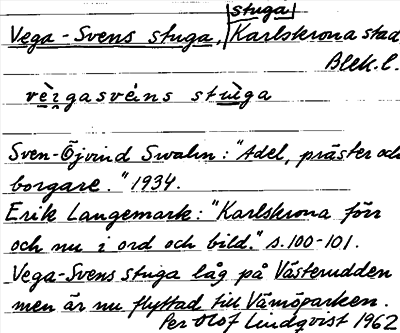 stuga
Vega-Svens stuga, Karlskrona stad
Blek.l.
vègasvèins stuga
Sven-Öjvind Swahn: "Adel, präster och
borgare." 1934.
Erik Langemark: "Karlskrona förr
och nu i ord och bild." s.100-101.
Vega-Svens stuga låg på Västerudden
men är nu flyttad till Vämöparken.
Per Olof Lindqvist 1962